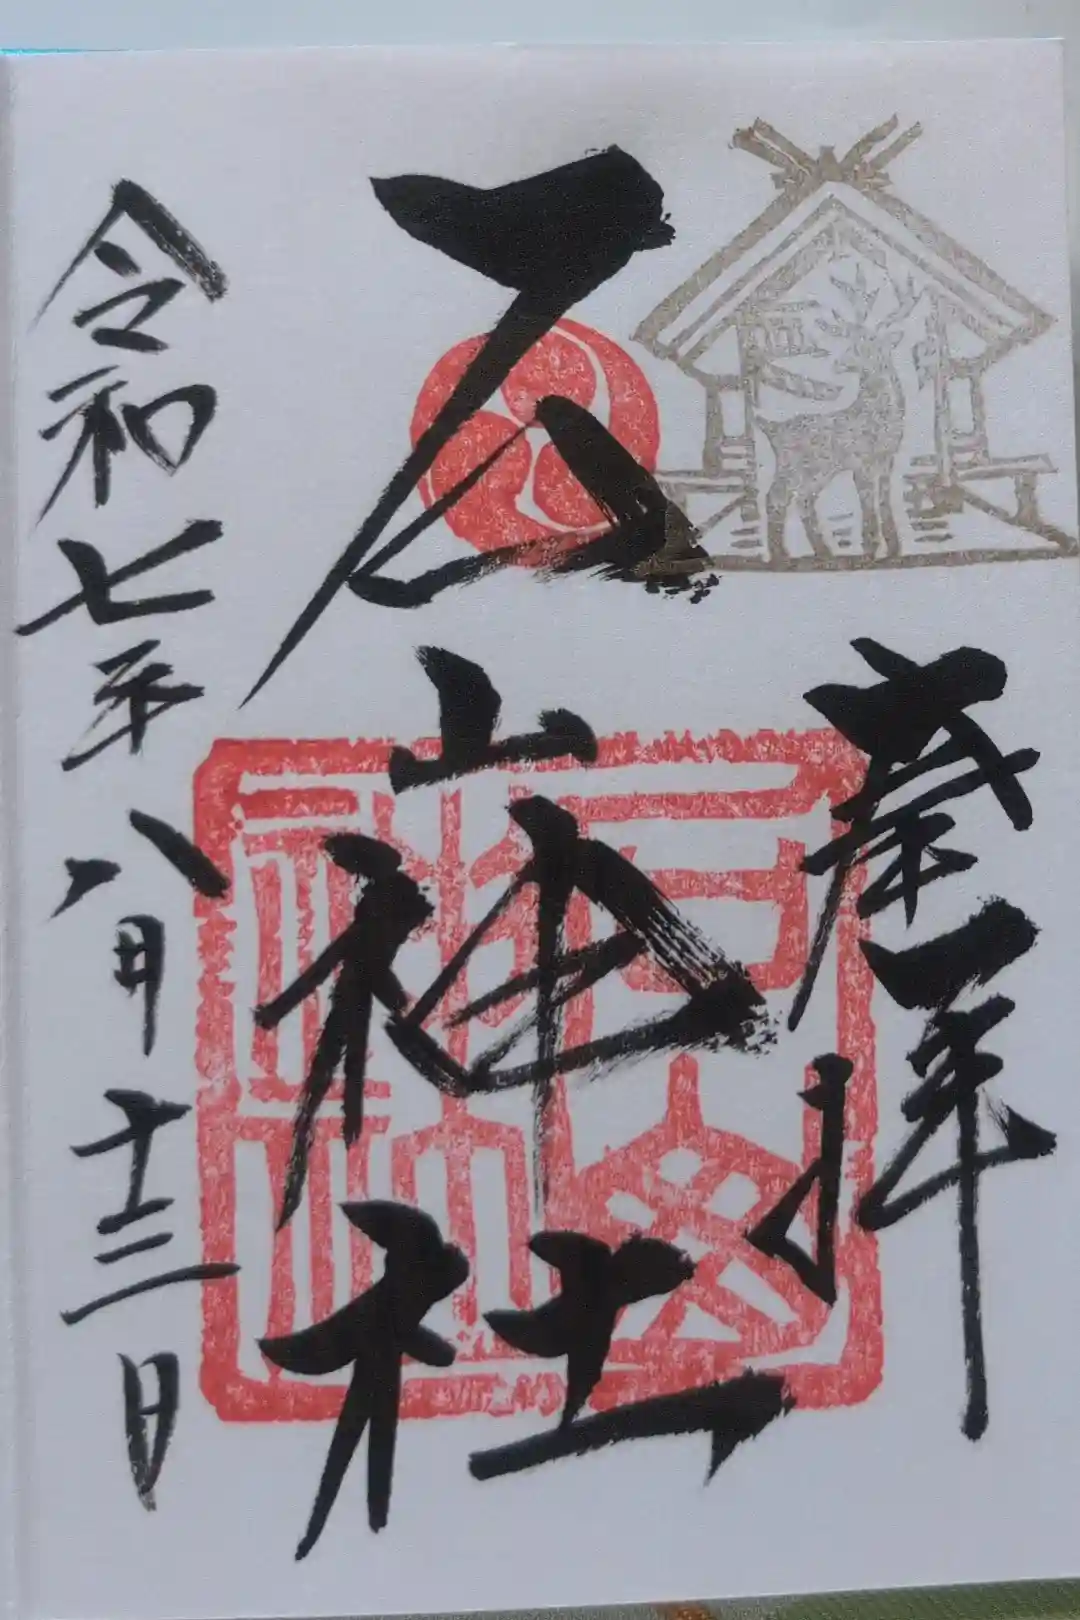 奉拝
石山神社
令和七年八月十三日